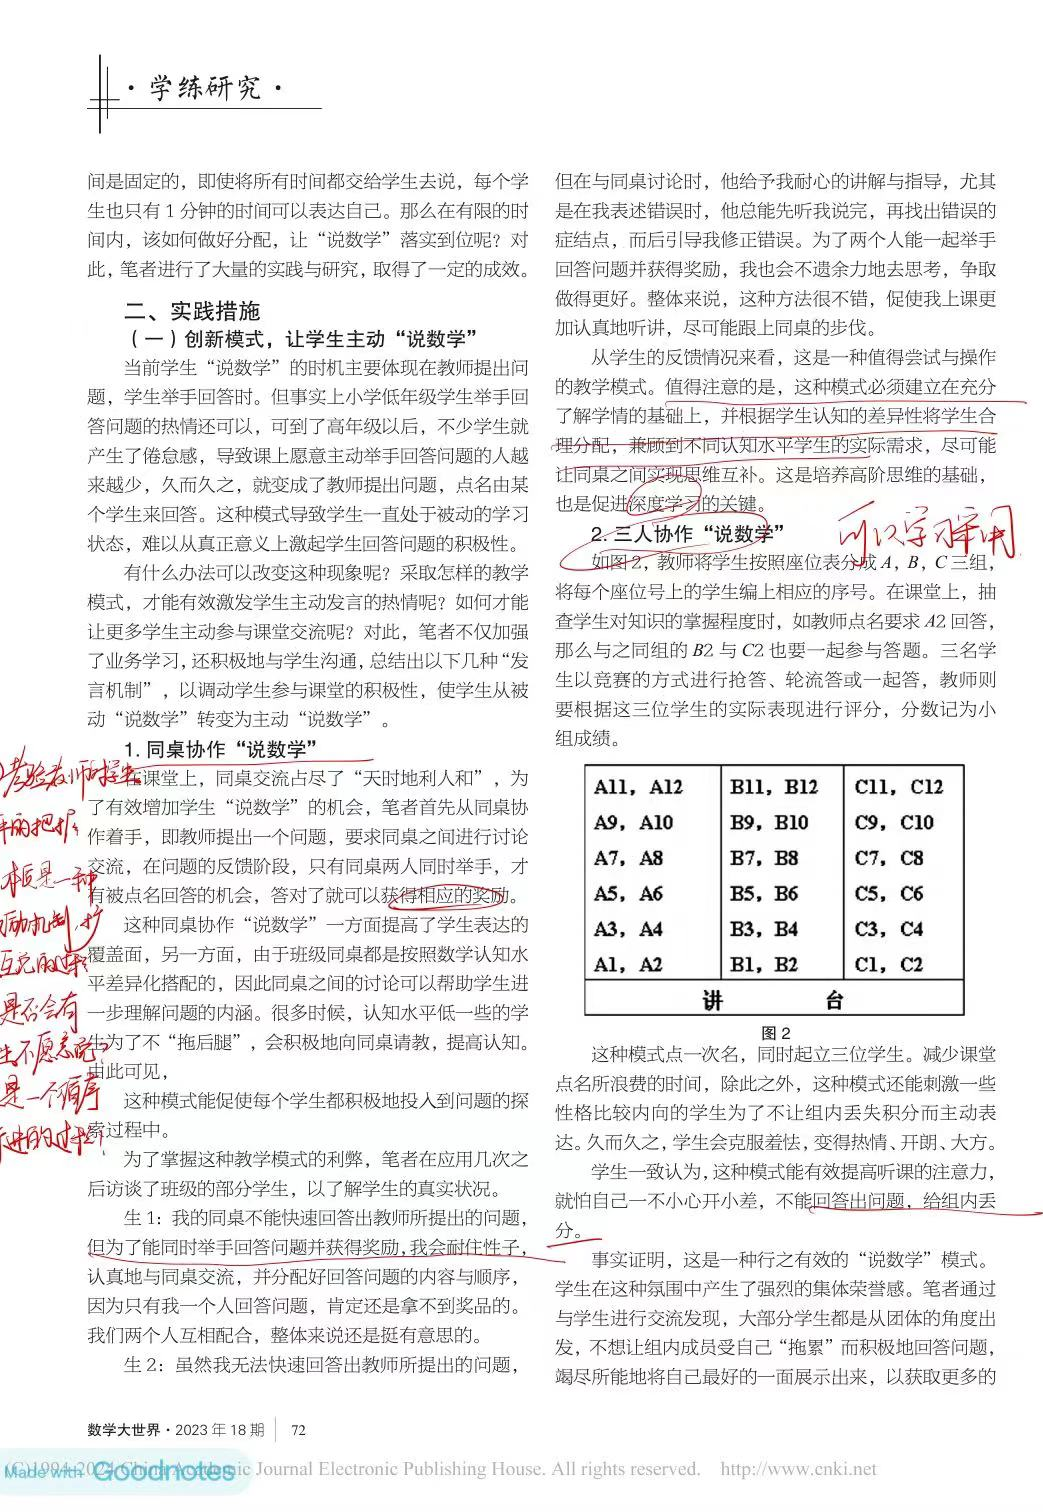 ·学练研究·
间是固定的，即使将所有时间都交给学生去说，每个学
生也只有 1 分钟的时间可以表达自己。那么在有限的时
间内，该如何做好分配，让“说数学”落实到位呢？对
此，笔者进行了大量的实践与研究，取得了一定的成效。
二、实践措施
（一）创新模式，让学生主动“说数学”
当前学生“说数学”的时机主要体现在教师提出问
题，学生举手回答时。但事实上小学低年级学生举手回
答问题的热情还可以，可到了高年级以后，不少学生就
产生了倦怠感，导致课上愿意主动举手回答问题的人越
来越少，久而久之，就变成了教师提出问题，点名由某
个学生来回答。这种模式导致学生一直处于被动的学习
状态，难以从真正意义上激起学生回答问题的积极性。
有什么办法可以改变这种现象呢？采取怎样的教学
模式，才能有效激发学生主动发言的热情呢？如何才能
让更多学生主动参与课堂交流呢？对此，笔者不仅加强
了业务学习，还积极地与学生沟通，总结出以下几种“发
言机制”，以调动学生参与课堂的积极性，使学生从被
动“说数学”转变为主动“说数学”。
1. 同桌协作“说数学”
在课堂上，同桌交流占尽了“天时地利人和”，为
了有效增加学生“说数学”的机会，笔者首先从同桌协
作着手，即教师提出一个问题，要求同桌之间进行讨论
交流，在问题的反馈阶段，只有同桌两人同时举手，才
有被点名回答的机会，答对了就可以获得相应的奖励。
这种同桌协作“说数学”一方面提高了学生表达的
覆盖面，另一方面，由于班级同桌都是按照数学认知水
平差异化搭配的，因此同桌之间的讨论可以帮助学生进
一步理解问题的内涵。很多时候，认知水平低一些的学
生为了不“拖后腿”，会积极地向同桌请教，提高认知。
由此可见，
这种模式能促使每个学生都积极地投入到问题的探
索过程中。
为了掌握这种教学模式的利弊，笔者在应用几次之
后访谈了班级的部分学生，以了解学生的真实状况。
生 1：我的同桌不能快速回答出教师所提出的问题，
但为了能同时举手回答问题并获得奖励，我会耐住性子，
认真地与同桌交流，并分配好回答问题的内容与顺序，
因为只有我一个人回答问题，肯定还是拿不到奖品的。
我们两个人互相配合，整体来说还是挺有意思的。
生 2：虽然我无法快速回答出教师所提出的问题，
考验教师对学生
的把握
一种
励机制
是否会有
不愿意说
是一个循序
进的过程
但在与同桌讨论时，他给予我耐心的讲解与指导，尤其
是在我表述错误时，他总能先听我说完，再找出错误的
症结点，而后引导我修正错误。为了两个人能一起举手
回答问题并获得奖励，我也会不遗余力地去思考，争取
做得更好。整体来说，这种方法很不错，促使我上课更
加认真地听讲，尽可能跟上同桌的步伐。
从学生的反馈情况来看，这是一种值得尝试与操作
的教学模式。值得注意的是，这种模式必须建立在充分
了解学情的基础上，并根据学生认知的差异性将学生合
理分配，兼顾到不同认知水平学生的实际需求，尽可能
让同桌之间实现思维互补。这是培养高阶思维的基础，
也是促进深度学习的关键。
2. 三人协作“说数学”
可以学习采用
如图 2，教师将学生按照座位表分成 A，B，C 三组，
将每个座位号上的学生编上相应的序号。在课堂上，抽
查学生对知识的掌握程度时，如教师点名要求 A2 回答，
那么与之同组的 B2 与 C2 也要一起参与答题。三名学
生以竞赛的方式进行抢答、轮流答或一起答，教师则
要根据这三位学生的实际表现进行评分，分数记为小
组成绩。
A11，A12 B11，B12 C11，C12
A9，A10 B9，B10 C9，C10
A7，A8 B7，B8 C7，C8
A5，A6 B5，B6 C5，C6
A3，A4 B3，B4 C3，C4
A1，A2 B1，B2 C1，C2
讲 台
图 2
这种模式点一次名，同时起立三位学生。减少课堂
点名所浪费的时间，除此之外，这种模式还能刺激一些
性格比较内向的学生为了不让组内丢失积分而主动表
达。久而久之，学生会克服羞怯，变得热情、开朗、大方。
学生一致认为，这种模式能有效提高听课的注意力，
就怕自己一不小心开小差，不能回答出问题，给组内丢
分。
事实证明，这是一种行之有效的“说数学”模式。
学生在这种氛围中产生了强烈的集体荣誉感。笔者通过
与学生进行交流发现，大部分学生都是从团体的角度出
发，不想让组内成员受自己“拖累”而积极地回答问题，
竭尽所能地将自己最好的一面展示出来，以获取更多的
数学大世界·2023 年 18 期 72
(C)1994-2024 China Academic Journal Electronic Publishing House. All rights reserved. http://www.cnki.net
Made with Goodnotes